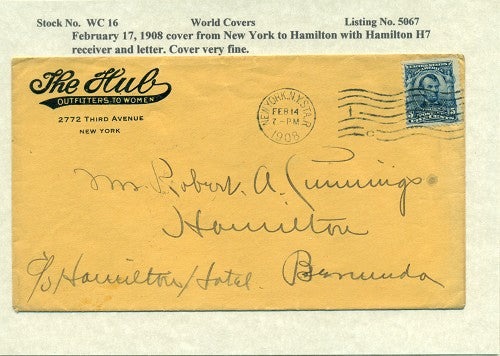 Stock No. WC 16 World Covers Listing No. 5067
February 17, 1908 cover from New York to Hamilton with Hamilton H7
receiver and letter. Cover very fine.
The Hub
OUTFITTERS TO WOMEN
2772 THIRD AVENUE
NEW YORK
NEW YORK, N.Y. STA. R
FEB 14
7-PM
1908
5 5
Mr. Robert A. Cummings
Hamilton
c/o Hamilton Hotel. Bermuda